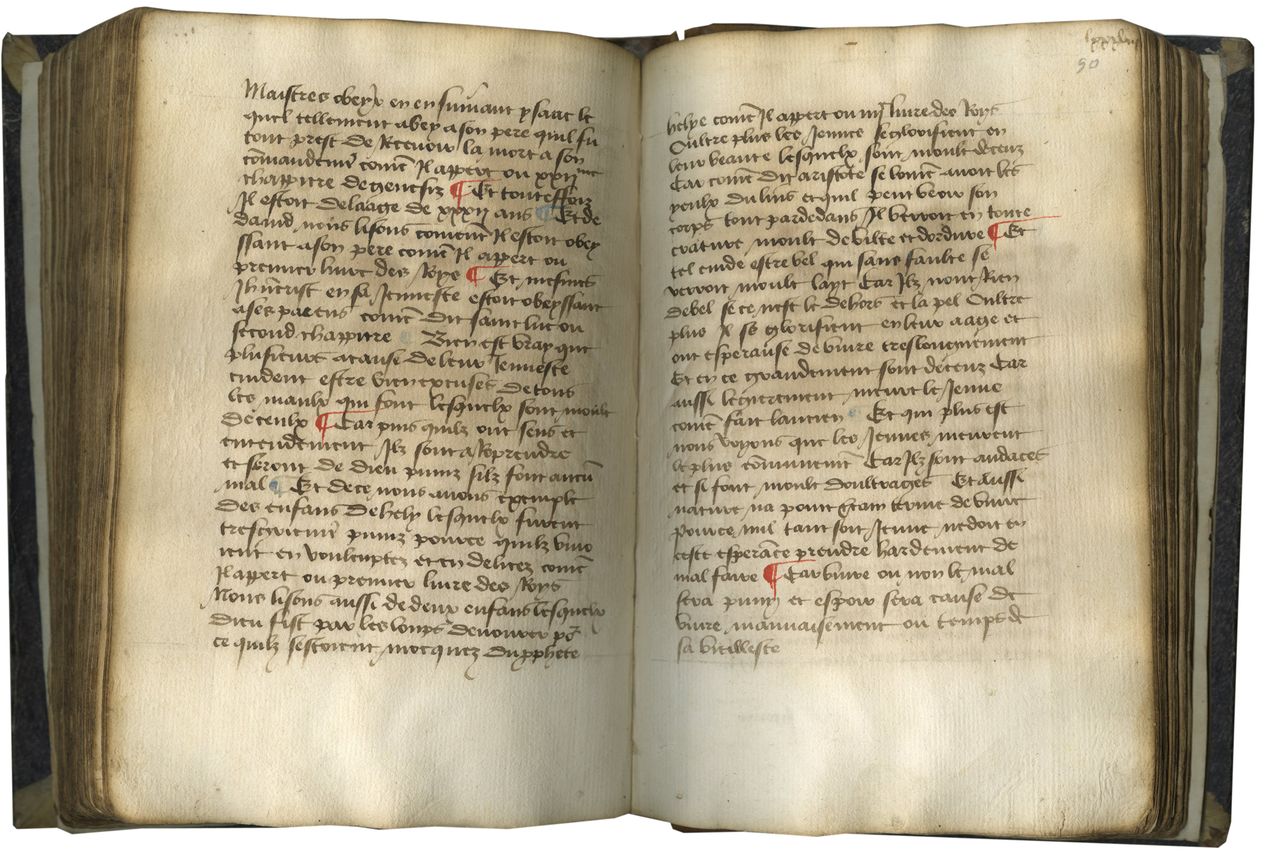 Maistres obeyr en ensuivant ysaac le
quel tellement a bey a son pere quil fu
tout prest de Recevoir la mort a son
comandemt come Il appert ou xxiime
chappitre de genesis ¶ Et touteffoiz
Il estoit de laage de xxxii ans ¶ Et de
david nous lisons coment Il estoit obey
ssant a son pere come Il appert ou
premier livre des Roys ¶ Et mesmes
Jhucrist en sa Jennesse estoit obeyssant
a ses parens come dit saint luc ou
second chappitre ¶ Bien est vray que
plusieurs a cause de leur Jennesse
cuident estre bien excuses de tous
les maulx qui font lesquelx sont moult
deceulx ¶ Car puis quilz ont sens et
entendement Ilz sont a Reprendre
et seront de dieu puniz silz font aucu
mal ¶ Et de ce nous avons exemple
des enfans de hely lesquelx furent
tresgriemt puniz pource quilz vivo
ient en voulentez et en delicez come
Il appert ou premier livre des Roys
Nous lisons aussi de deux enfans lesquelx
dieu fist par les loups devourer po
ce quilz sestoient mocquez du pphete
lxxxix
90
helye come Il appert ou iiii livre des Roys
Oultre plus les Jennes se glorifient en
leur beaute lesquelx sont moult deceuz
Car come dit aristote se lome avoit les
yeulx du luis et quil peut veoir son
corps tout par dedans Il verroit en toute
creature moult de vilte et dordure ¶ Et
tel cuide estre bel qui sans faulte se
verroit moult layt Car Ilz nont Rien
de bel se ce nest le dehors et la pel Oultre
plus Il se glorifient en leur aage et
ont esperanse de vivre treslonguement
Et en ce grandement sont deceuz Car
aussi legierement meurt le Jenne
come fait lancien ¶ Et qui plus est
nous voyons que les Jennes meurent
le plus comunemt Car Ilz sont audaces
et si font moult doultrages Et aussi
nature na point certain terme de vivre
Pource nul tant soit Jenne ne doit en
ceste esperance prendre hardement de
mal faire ¶ Car vivre ou non le mal
sera puny et espoir sera cause de
vivre mauvaisement ou temps de
sa vieillesse